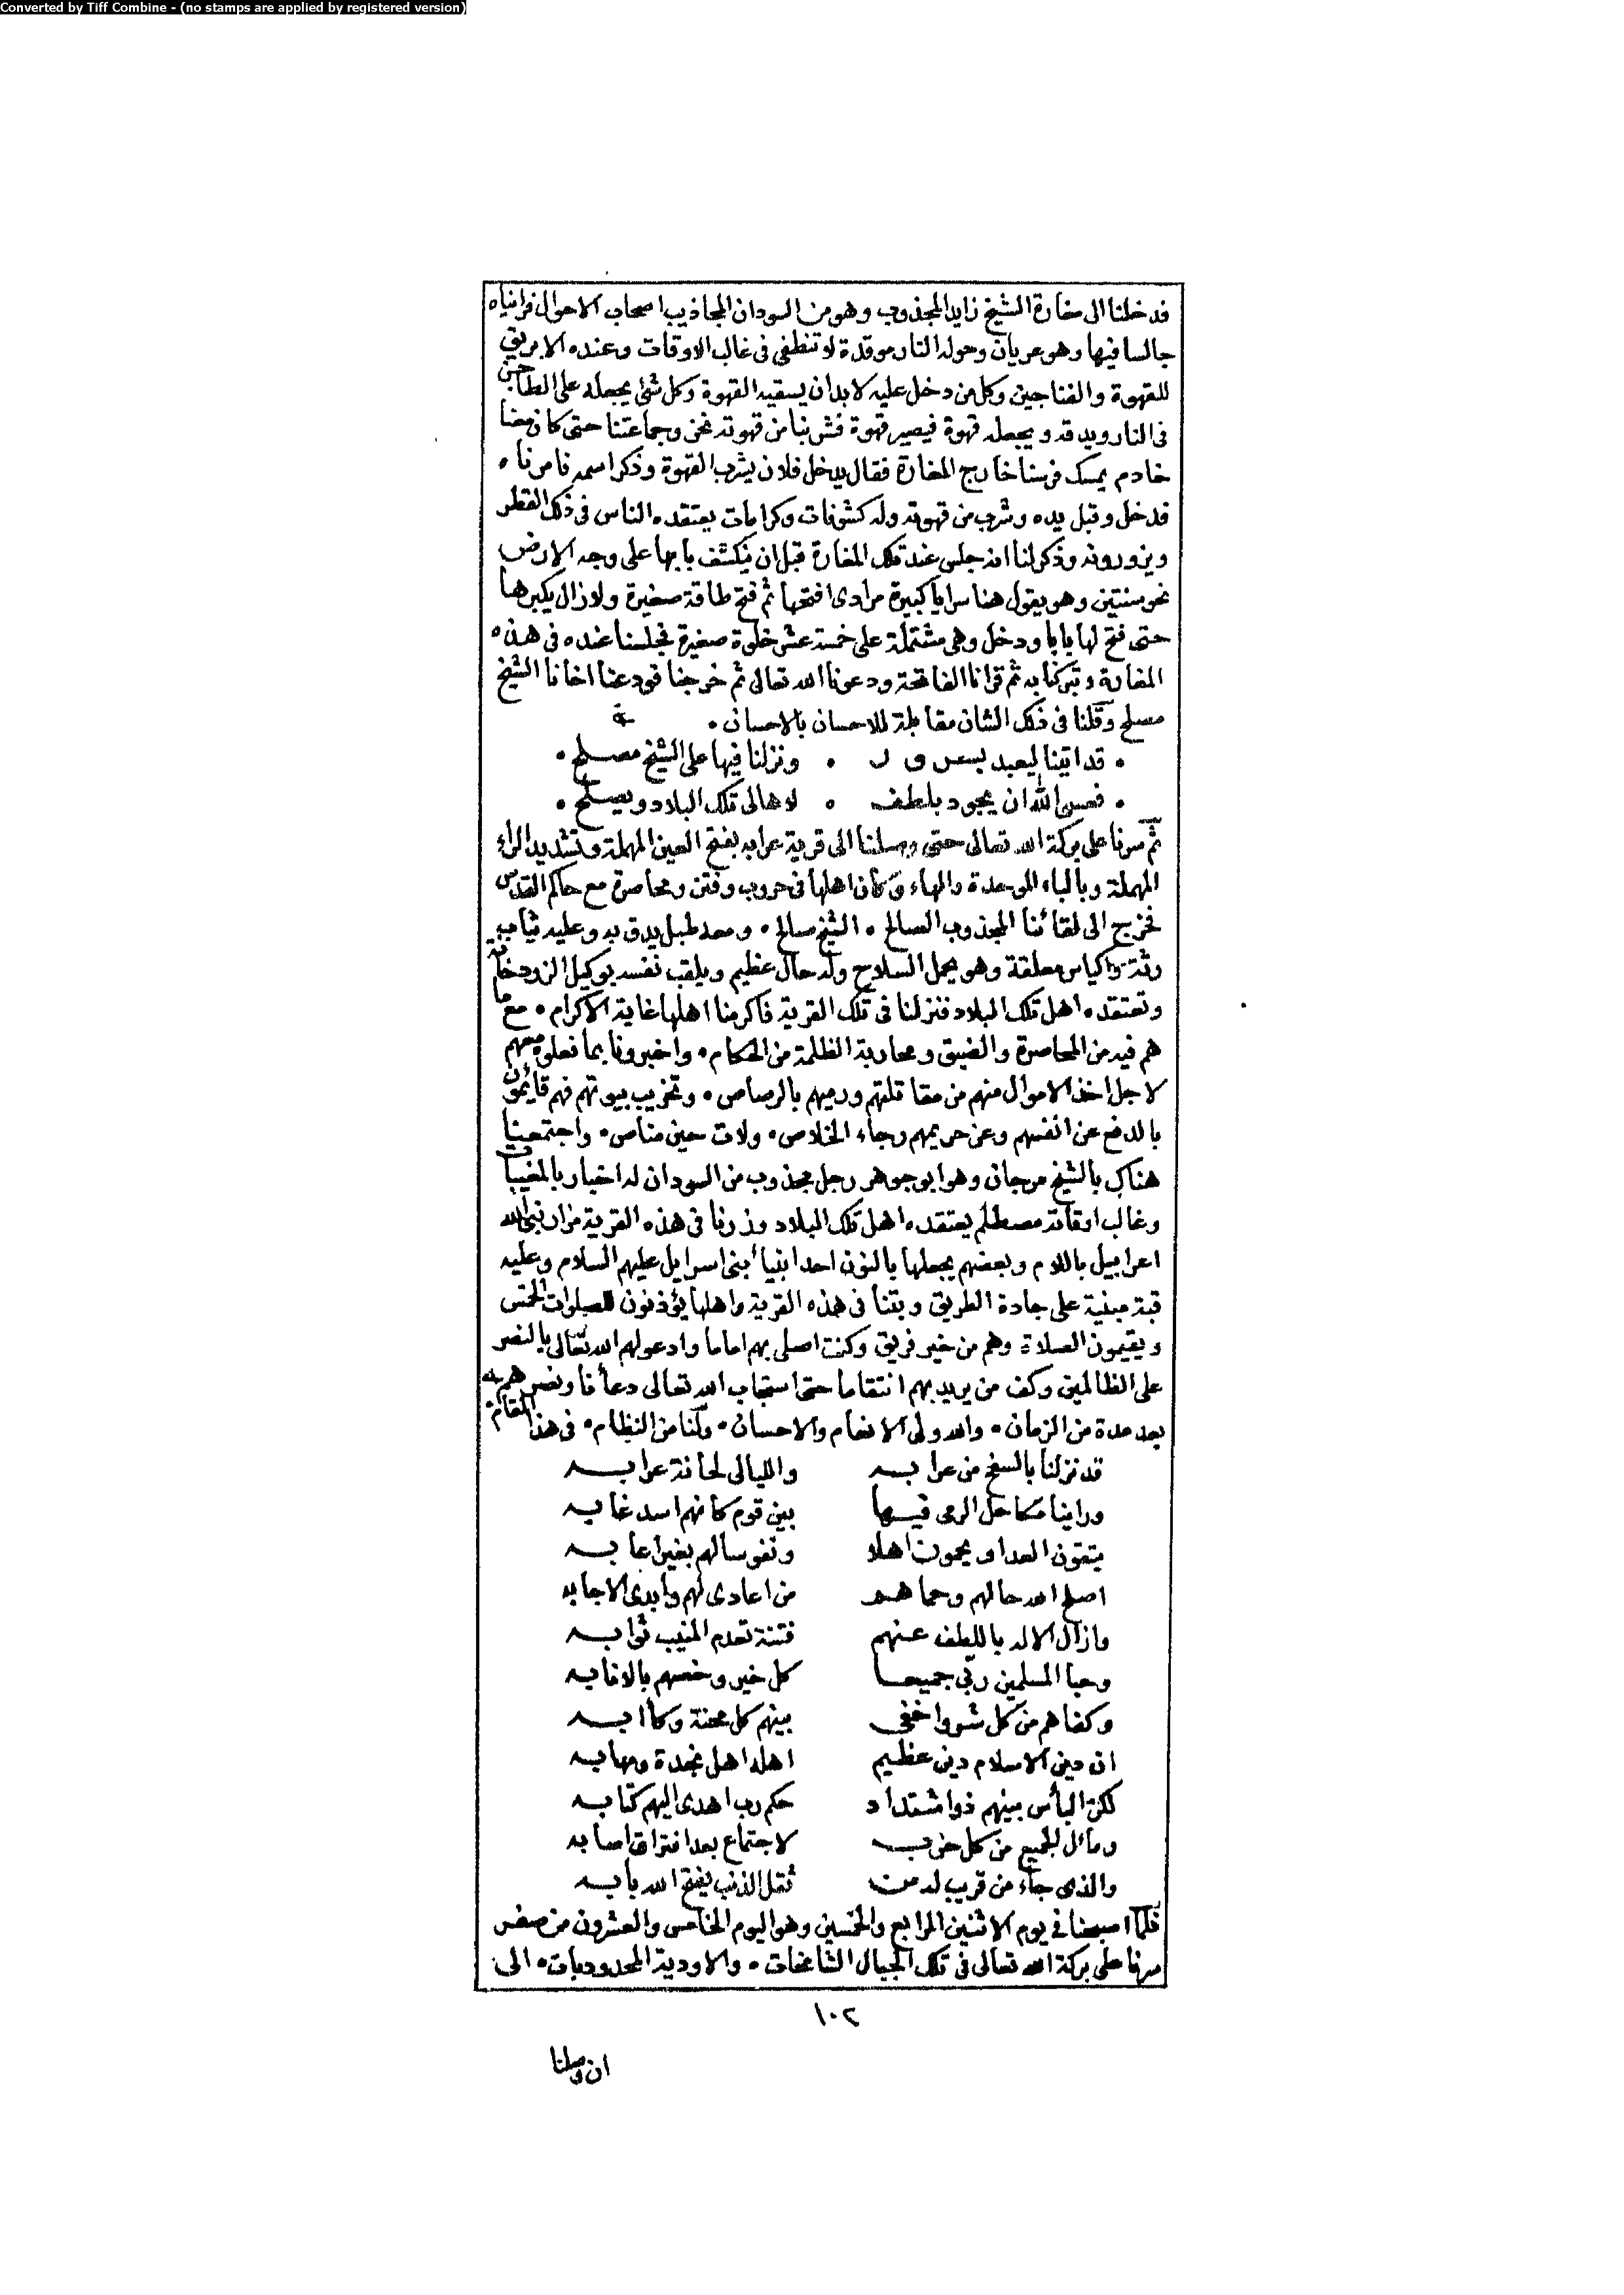 Converted by Tiff Combine - (no stamps are applied by registered version)
فدخلنا الى مغارة الشيخ زايد المجذوب وهو من السودان المجاذيب اصحاب الاحوال فرايناه
جالسا فيها وهو عريان وحوله النار موقدة لا تنطفى فى غالب الاوقات وعنده الابريق
للقهوة والفناجين وكل من دخل عليه لابد ان يسقيه القهوة وكل شئ يجعله على الطاجن
فى النار ويدقه ويجعله قهوة فيصير قهوة فشربنا من قهوته نحن وجماعتنا حتى كان معنا
خادم يمسك فرسنا خارج المغارة فقال يدخل فلان يشرب القهوة وذكر اسمه فامرناه
فدخل وقبل يده وشرب من قهوته وله كشوفات وكرامات يعتقده الناس فى ذلك القطر
ويزورونه وذكر لنا انه جلس عند تلك المغارة قبل ان ينكشف بابها على وجه الارض
نحو سنتين وهو يقول هنا سرايا كبيرة مرادى افتحها ثم فتح طاقة صغيرة ولازال يكبرها
حتى فتح لها بابا ودخل وهى مشتملة على خمسة عشر خلوة صغيرة فجلسنا عنده فى هذه
المغارة وتبركنا به ثم قرانا الفاتحة ودعونا الله تعالى ثم خرجنا فودعنا اخانا الشيخ
مصلح وقلنا فى ذلك الشان مقابلة للاحسان بالاحسان
قد اتينا ليعبد بسرور ونزلنا فيها على الشيخ مصلح
فعسى الله ان يجود بلطف لاهالى تلك البلاد ويصلح
ثم سرنا على بركة الله تعالى حتى وصلنا الى قرية عرابه بفتح العين المهملة وتشديد الراء
المهملة وبالباء الموحدة والهاء وكان اهلها فى حروب وفتن ومحاصرة مع حاكم القدس
فخرج الى لقائنا المجذوب الصالح الشيخ صالح ومعه طبل يدق به وعليه ثياب
رثة واكياس معلقة وهو يحمل السلاح وله حال عظيم ويلقب نفسه بوكيل الزردخانة
وتعتقده اهل تلك البلاد فنزلنا فى تلك القرية فاكرمنا اهلها غاية الاكرام مع ما
هم فيه من المحاصرة والضيق ومحاربة الظلمة من الحكام واخبرونا بما فعلوه معهم
لاجل اخذ الاموال منهم من مقاتلتهم ورميهم بالرصاص وتخريب بيوتهم فهم قايمون
بالدفع عن انفسهم وعن حريمهم رجاء الخلاص ولات حين مناص واجتمعنا
هناك بالشيخ مرجان وهو ابو جوهر رجل مجذوب من السودان له اخبار بالمغيبات
وغالب اوقاته مصطلم يعتقده اهل تلك البلاد وزرنا فى هذه القرية مزار نبى الله
اعرابيل باللام وبعضهم يجعلها بالنون احد انبياء بنى اسرايل عليهم السلام وعليه
قبة مبنية على جادة الطريق وبتنا فى هذه القرية واهلها يؤذنون للصلوات الخمس
ويقيمون الصلاة وهم من خير فريق وكنت اصلى بهم اماما وادعو لهم الله تعالى بالنصر
على الظالمين وكف من يريد بهم انتقاما حتى استجاب الله تعالى دعأنا ونصرهم
بعد مدة من الزمان والله ولى الانعام والاحسان ولنا من النظام فى هذا المقام
قد نزلنا بالسفح من عرابه والليالى لحانة عرابه
وراينا مكاحل الرمى فيها بين قوم كانهم اسد غابه
يتقون العدا ويحمون اهلا ونفوسا لهم بغير اعابه
اصلح الله حالهم وحماهم من اعادى لهم وابدى الاجابه
وازال الاله باللطف عنهم فتنة تعدم المنيب ثوابه
وحبا المسلمين ربى جميعا كل خير وخصهم بالانابه
وكفاهم من كل شر واخفى بينهم كل محنة وكأابه
ان دين الاسلام دين عظيم اهله اهل نجدة ومهابه
لكن البأس بينهم ذو اشتداد حكم رب اهدى اليهم كتابه
ومأل الجميع من كل حزب لاجتماع بعد افتراق اصابه
والذى جاء من قريب له من ثقل الذنب يفتح الله بابه
فلما اصبحنا فى يوم الاثنين الرابع والخمسين وهو اليوم الخامس والعشرون من صفر
سرنا على بركة الله تعالى فى تلك الجبال الشامخات والاودية المحدودبات الى
١٠٢
ان وصلنا